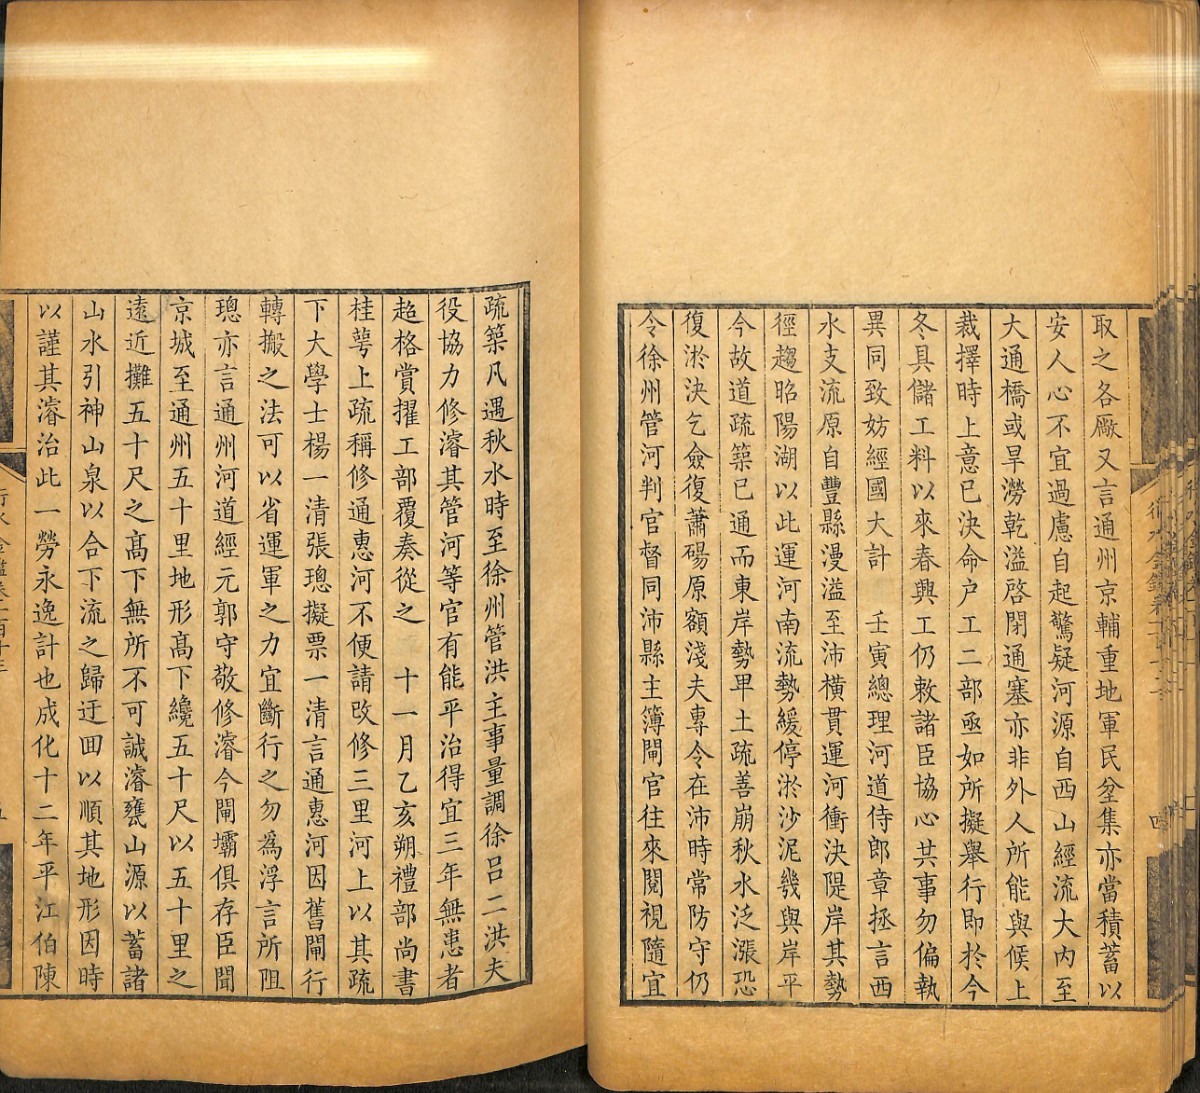 取之各厰又言通州京輔重地軍民坌集亦當積蓄以
安人心不宜過慮自起驚疑河源自西山經流大內至
大通橋或旱澇乾溢啓閉通塞亦非外人所能與候上
裁擇時上意已決命户工二部亟如所擬舉行即於今
冬具儲工料以來春興工仍敕諸臣協心共事勿偏執
異同致妨經國大計　壬寅總理河道侍郎章拯言西
水支流原自豐縣漫溢至沛橫貫運河衝決隄岸其勢
徑趨昭陽湖以此運河南流勢緩停淤沙泥幾與岸平
今故道疏築已通而東岸勢卑土疏善崩秋水泛漲恐
復淤決乞僉復蕭碭原額淺夫專令在沛時常防守仍
令徐州管河判官督同沛縣主簿閘官往來閱視隨宜
疏築凡遇秋水時至徐州管洪主事量調徐呂二洪夫
役協力修濬其管河等官有能平治得宜三年無患者
超格賞擢工部覆奏從之　十一月乙亥朔禮部尚書
桂萼上疏稱修通惠河不便請改修三里河上以其疏
下大學士楊一清張璁擬票一清言通惠河因舊閘行
轉搬之法可以省運軍之力宜斷行之勿為浮言所阻
璁亦言通州河道經元郭守敬修濬今閘壩俱存臣聞
京城至通州五十里地形髙下纔五十尺以五十里之
遠近攤五十尺之髙下無所不可誠濬甕山源以蓄諸
山水引神山泉以合下流之歸迂回以順其地形因時
以謹其濬治此一勞永逸計也成化十二年平江伯陳